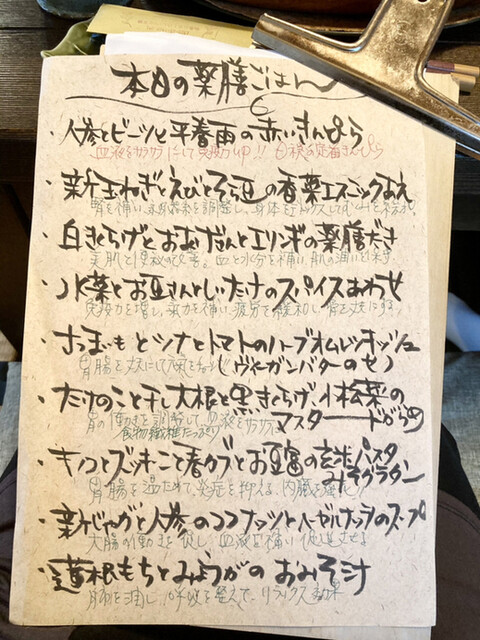 本日の薬膳ごはん
・人参とビーツと平春雨の赤いきんぴら
血液をサラサラにして免疫力up!!
・新玉ねぎとえびとそら豆の香菜エスニックあえ
腎を補い、
・白きくらげとおあげさんとエリンギの薬膳だき
美肌と便秘の改善。血と水分を補い、肌の潤い
・水菜とお豆さんとしいたけのスパイスあわせ
免疫力を増し、気力を補い、疲労を緩和し、骨を丈夫に
・さつまいもとツナとトマトのハーブオムレツキッシュ
胃腸を丈夫にして
(ヴィーガンバターのせ)
・たけのこと干し大根と黒きくらげ、小松菜の
マスタードがらめ
胃の働きを調整して血液をサラサラに
食物繊維たっぷり
・キノコとズッキーニと春カブとお豆富の玄米パスタ
みそグラタン
胃腸を温めて、炎症を抑える、内臓を強化!!
・新じゃがと人参のココナッツとヘーゼルナッツのスープ
大腸の働きを促し、血液を補い
・蓮根もちとみょうがのおみそ汁
肺を潤し、呼吸を整えて、リラックス効果